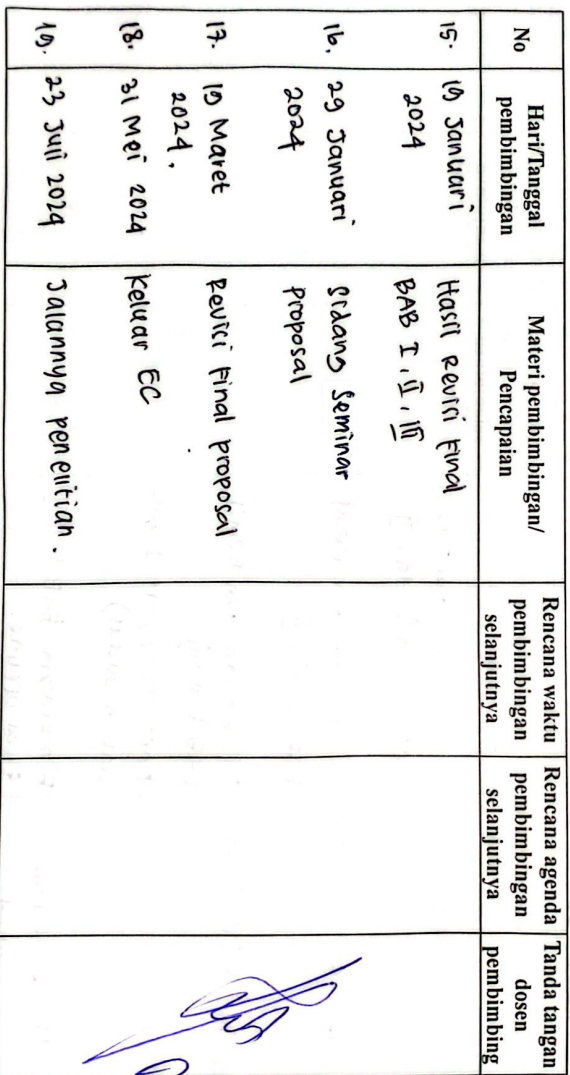 No
Hari/Tanggal
pembimbingan
Materi pembimbingan/
Pencapaian
Rencana waktu
pembimbingan
selanjutnya
Rencana agenda
pembimbingan
selanjutnya
Tanda tangan
dosen
pembimbing
15.
19 Januari
2024
Hasil Revisi Final
BAB I, II, III
16.
29 Januari
2024
Sidang Seminar
proposal
17.
19 Maret
2024.
Revisi Final proposal
18.
31 Mei 2024
Keluar EC
19.
23 Juli 2024
Jalannya penelitian.